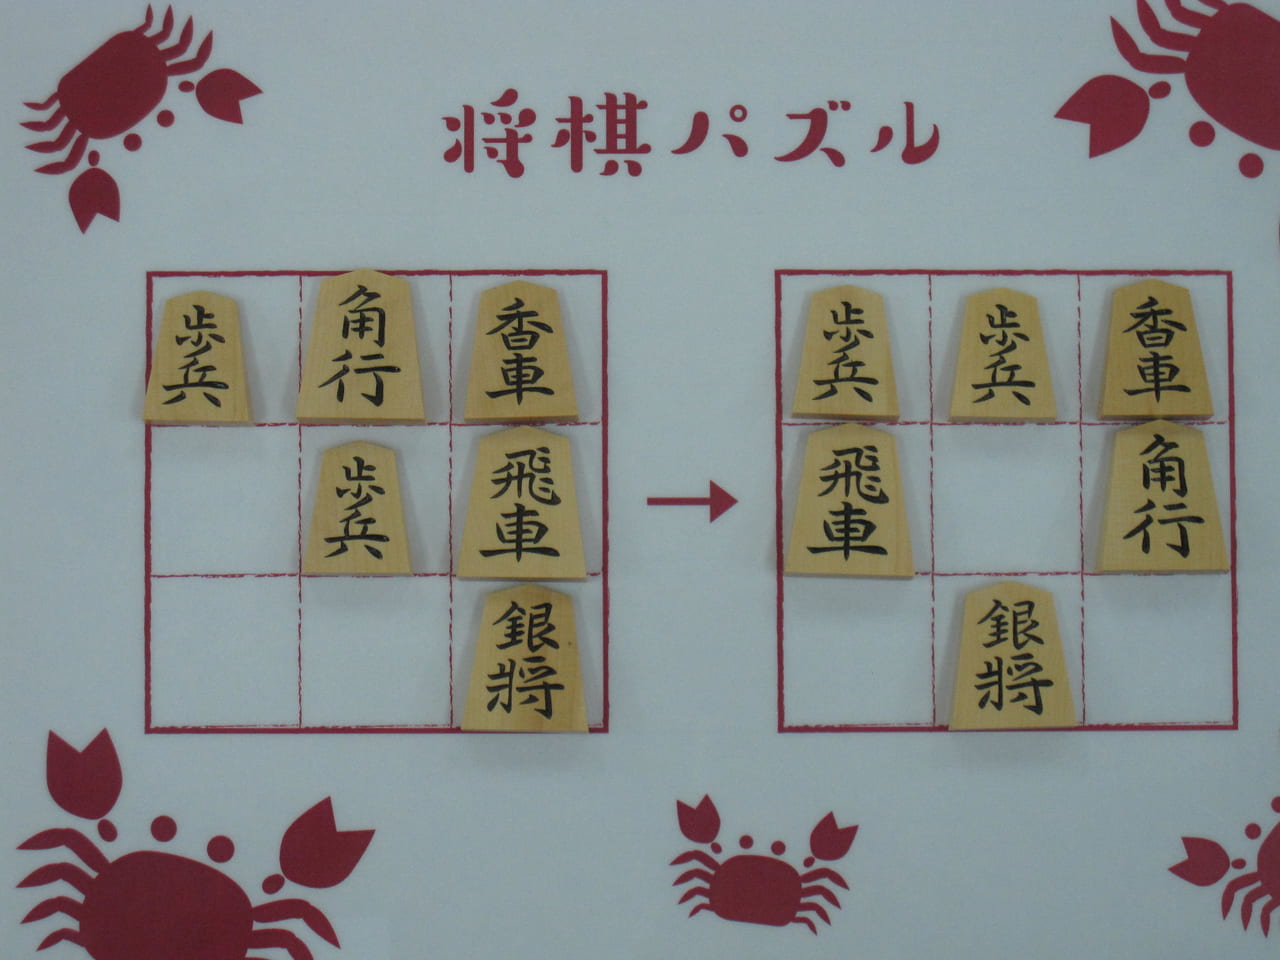 将棋パズル
歩兵 角行 香車
歩兵 飛車
銀将
歩兵 歩兵 香車
飛車 角行
銀将